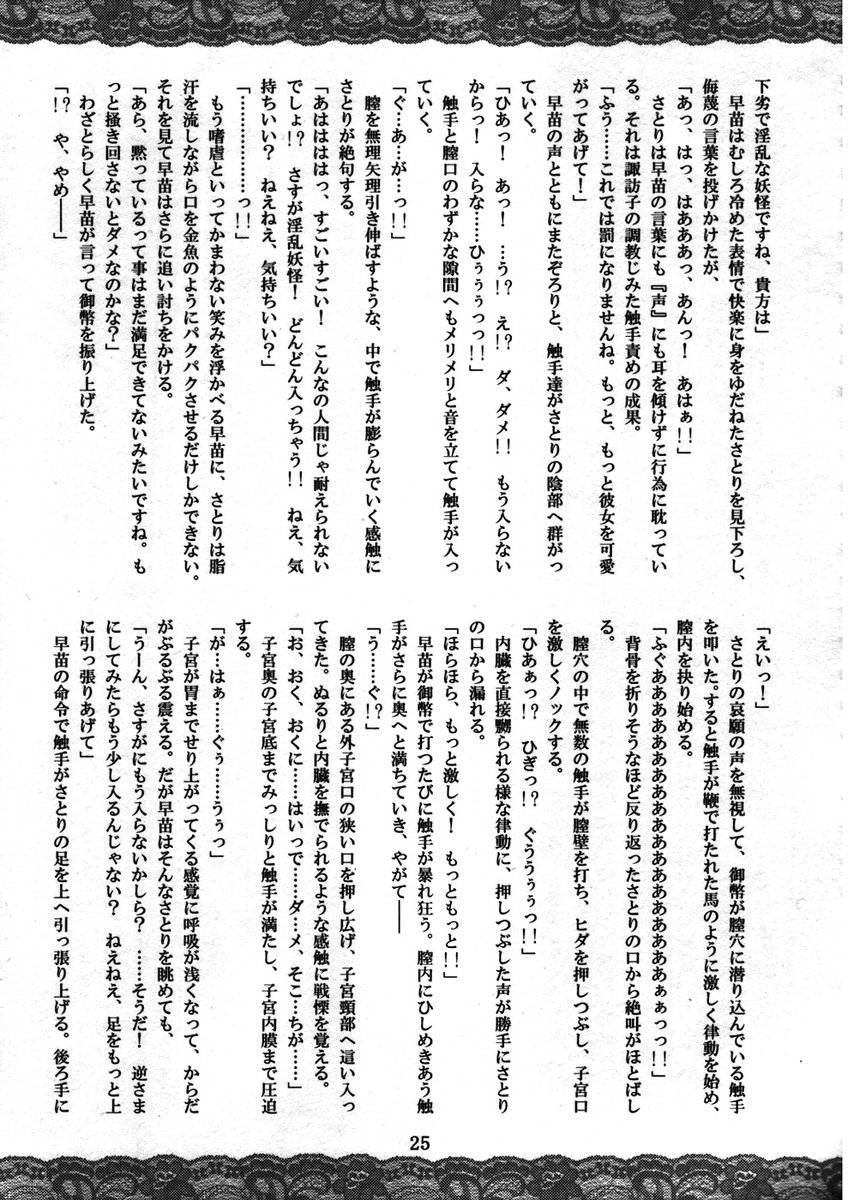 下劣で淫乱な妖怪ですね、貴方は」
早苗はむしろ冷めた表情で快楽に身をゆだねたさとりを見下ろし、
侮蔑の言葉を投げかけたが、
「あっ、はっ、はああっ、あんっ！　あはぁ！！」
さとりは早苗の言葉にも『声』にも耳を傾けずに行為に耽ってい
る。それは諏訪子の調教じみた触手責めの成果。
「ふう……これでは罰になりませんね。もっと、もっと彼女を可愛
がってあげて！」
早苗の声とともにまたぞろりと、触手達がさとりの陰部へ群がっ
ていく。
「ひあっ！　あっ！　…う！？　え！？　ダ、ダメ！！　もう入らない
からっ！　入らな……ひぅぅぅっっ！！」
触手と膣口のわずかな隙間へもメリメリと音を立てて触手が入っ
ていく。
「ぐ…あ…が…っ！！」
膣を無理矢理引き伸ばすような、中で触手が膨らんでいく感触に
さとりが絶句する。
「あはははっ、すごいすごい！　こんなの人間じゃ耐えられない
でしょ！？　さすが淫乱妖怪！　どんどん入っちゃう！！　ねえ、気
持ちいい？　ねえねえ、気持ちいい？」
「……………っ！！」
もう嗜虐といってかまわない笑みを浮かべる早苗に、さとりは脂
汗を流しながら口を金魚のようにパクパクさせるだけしかできない。
それを見て早苗はさらに追い討ちをかける。
「あら、黙っているって事はまだ満足できてないみたいですね。も
っと掻き回さないとダメなのかな？」
わざとらしく早苗が言って御幣を振り上げた。
「！？　や、やめ――」
「えいっ！」
さとりの哀願の声を無視して、御幣が膣穴に潜り込んでいる触手
を叩いた。すると触手が鞭で打たれた馬のように激しく律動を始め、
膣内を抉り始める。
「ふぐああああああああああああああああああぁぁっっ！！」
背骨を折りそうなほど反り返ったさとりの口から絶叫がほとばし
る。
膣穴の中で無数の触手が膣壁を打ち、ヒダを押しつぶし、子宮口
を激しくノックする。
「ひあぁっ！？　ひぎっ！？　ぐううぅぅっ！！」
内臓を直接嬲られる様な律動に、押しつぶした声が勝手にさとり
の口から漏れる。
「ほらほら、もっと激しく！　もっともっと！！」
早苗が御幣で打つたびに触手が暴れ狂う。膣内にひしめきあう触
手がさらに奥へと満ちていき、やがて――
「う……ぐ！？」
膣の奥にある外子宮口の狭い口を押し広げ、子宮頸部へ這い入っ
てきた。ぬるりと内臓を撫でられるような感触に戦慄を覚える。
「お、おく、おくに……はいっで……ダ…メ、そこ…ちが……」
子宮奥の子宮底までみっしりと触手が満たし、子宮内膜まで圧迫
する。
「が…はぁ……ぐぅ……うぅっ」
子宮が胃までせり上がってくる感覚に呼吸が浅くなって、からだ
がぶるぶる震える。だが早苗はそんなさとりを眺めても、
「うーん、さすがにもう入らないかしら？　……そうだ！　逆さま
にしてみたらもう少し入るんじゃない？　ねえねえ、足をもっと上
に引っ張りあげて」
早苗の命令で触手がさとりの足を上へ引っ張り上げる。後ろ手に
25